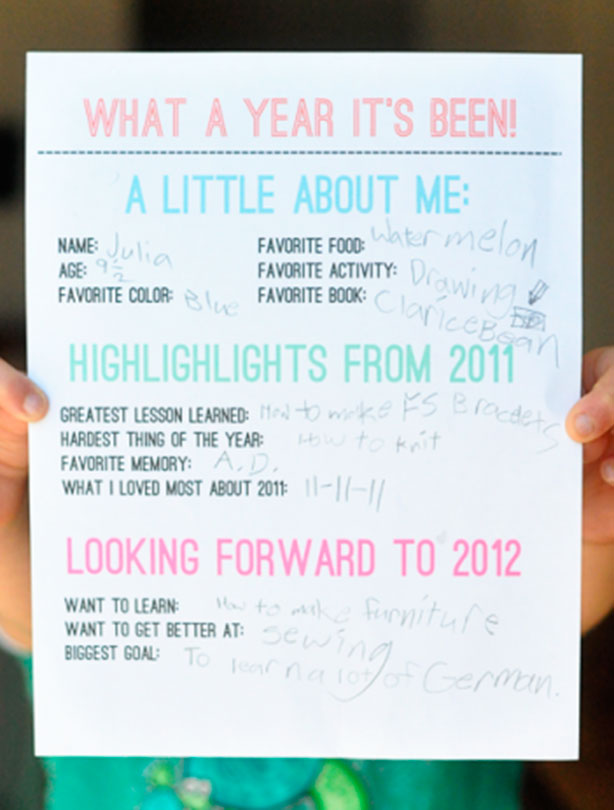 WHAT A YEAR IT'S BEEN!
A LITTLE ABOUT ME:
NAME: Julia FAVORITE FOOD: Watermelon
AGE: 9 1/2 FAVORITE ACTIVITY: Drawing
FAVORITE COLOR: Blue FAVORITE BOOK: Clarice Bean
HIGHLIGHLIGHTS FROM 2011
GREATEST LESSON LEARNED: How to make FS Bracelets
HARDEST THING OF THE YEAR: How to knit
FAVORITE MEMORY: A.D.
WHAT I LOVED MOST ABOUT 2011: 11-11-11
LOOKING FORWARD TO 2012
WANT TO LEARN: How to make furniture
WANT TO GET BETTER AT: Sewing
BIGGEST GOAL: To learn a lot of German.